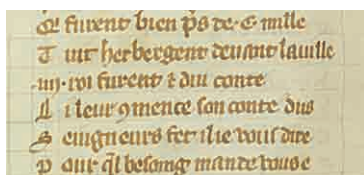 Qi furent bien p̃s de · C · mille
T uit herbergent deuant lauille
·iiij· roi furent ⁊ diu conte
L i leur ꝯmence son conte dus
S eingneurs fet il ie vous dire
P our q̃l besoing mande vous e